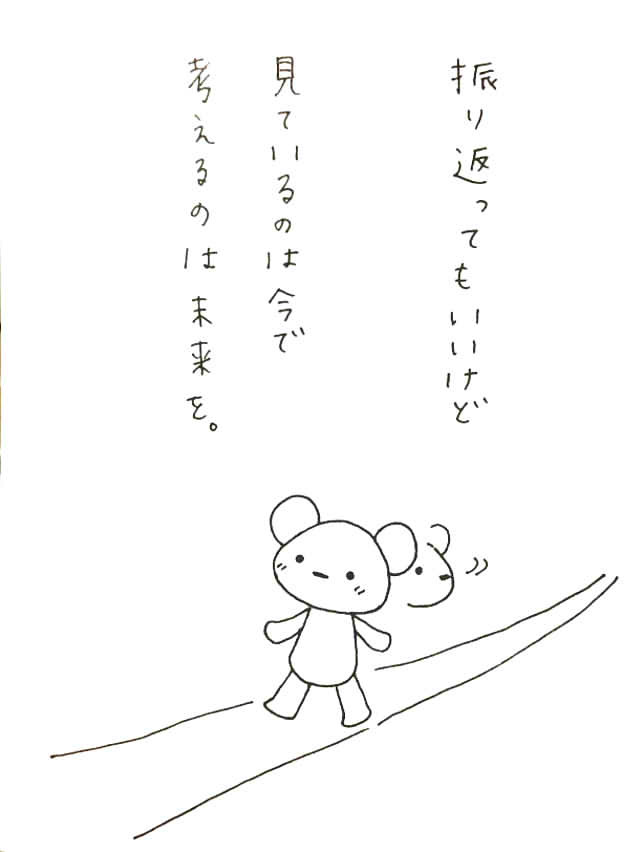 振り返ってもいいけど
見ているのは今で
考えるのは未来を。